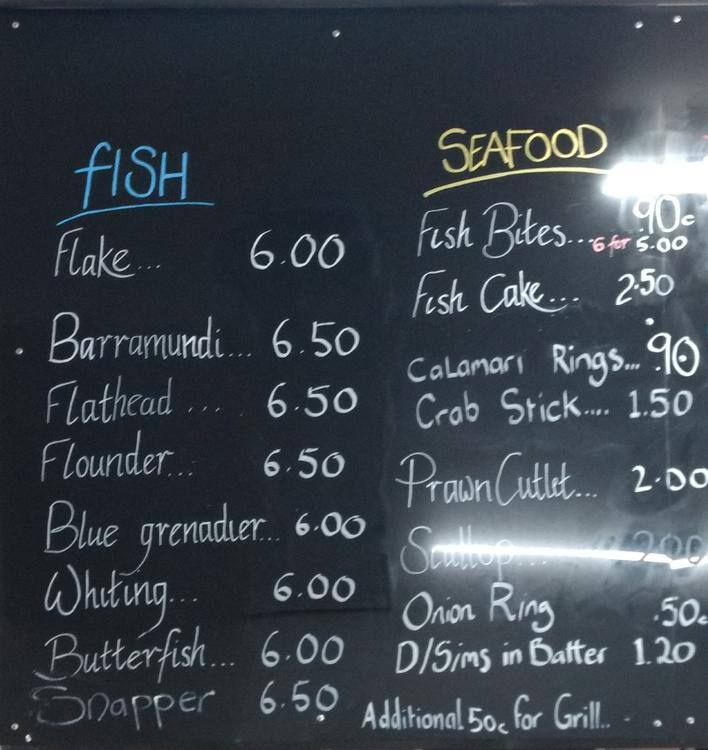 fISH
Flake... 6.00
Barramundi... 6.50
Flathead .... 6.50
Flounder... 6.50
Blue grenadier... 6.00
Whiting... 6.00
Butterfish... 6.00
Snapper 6.50
SEAFOOD
Fish Bites... .90c
6 for 5.00
Fish Cake... 2.50
CaLamari Rings... .90
Crab Stick.... 1.50
Prawn Cutlet... 2.00
Scallop... 2.00
Onion Ring .50c
D/Sims in Batter 1.20
Additional 50c for Grill..